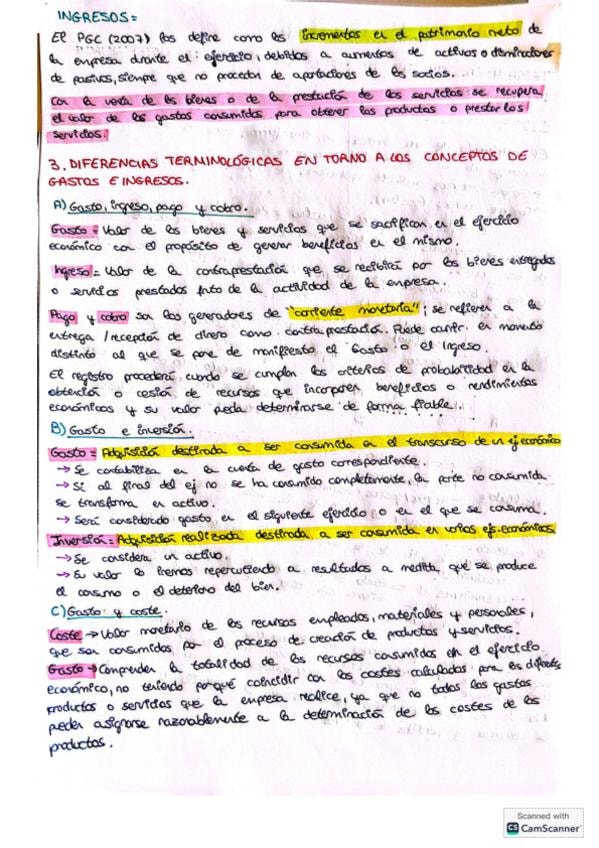 INGRESOS=
El PGC (2007) los define como los incrementos en el patrimonio neto de
la empresa durante el ejercicio, debidos a aumentos de activos o disminuciones
de pasivos, siempre que no procedan de aportaciones de los socios.
Con la venta de los bienes o de la prestación de los servicios se recupera
el valor de los gastos consumidos para obtener los productos o prestar los
servicios.
3. DIFERENCIAS TERMINOLÓGICAS EN TORNO A LOS CONCEPTOS DE
GASTOS E INGRESOS.
A) Gasto, ingreso, pago y cobro.
Gasto = Valor de los bienes y servicios que se sacrifican en el ejercicio
económico con el propósito de generar beneficios en el mismo.
Ingreso = Valor de la contraprestación que se recibirá por los bienes entregados
o servicios prestados fruto de la actividad de la empresa.
Pago y cobro son los generadores de "corriente monetaria"; se refieren a la
entrega/recepción de dinero como contraprestación. Puede ocurrir en momento
distinto al que se pone de manifiesto el Gasto o el Ingreso.
El registro procederá cuando se cumplan los criterios de probabilidad en la
obtención o cesión de recursos que incorporen beneficios o rendimientos
económicos y su valor pueda determinarse de forma fiable.
B) Gasto e inversión.
Gasto = Adquisición destinada a ser consumida en el transcurso de un ej económico
→ Se contabiliza en la cuenta de gasto correspondiente.
→ Si al final del ej no se ha consumido completamente, la parte no consumida
se transforma en activo.
→ Será considerado gasto en el siguiente ejercicio o en el que se consuma.
Inversión = Adquisición realizada destinada a ser consumida en varios ejs. económicos
→ Se considera un activo.
→ Su valor lo iremos repercutiendo a resultados a medida que se produce
el consumo o el deterioro del bien.
C) Gasto y coste.
Coste → Valor monetario de los recursos empleados, materiales y personales,
que son consumidos por el proceso de creación de productos y servicios.
Gasto → Comprenden la totalidad de los recursos consumidos en el ejercicio
económico, no teniendo porqué coincidir con los costes calculados para los diferentes
productos o servicios que la empresa realice, ya que no todos los gastos
pueden asignarse razonablemente a la determinación de los costes de los
productos.
Scanned with
CS CamScanner